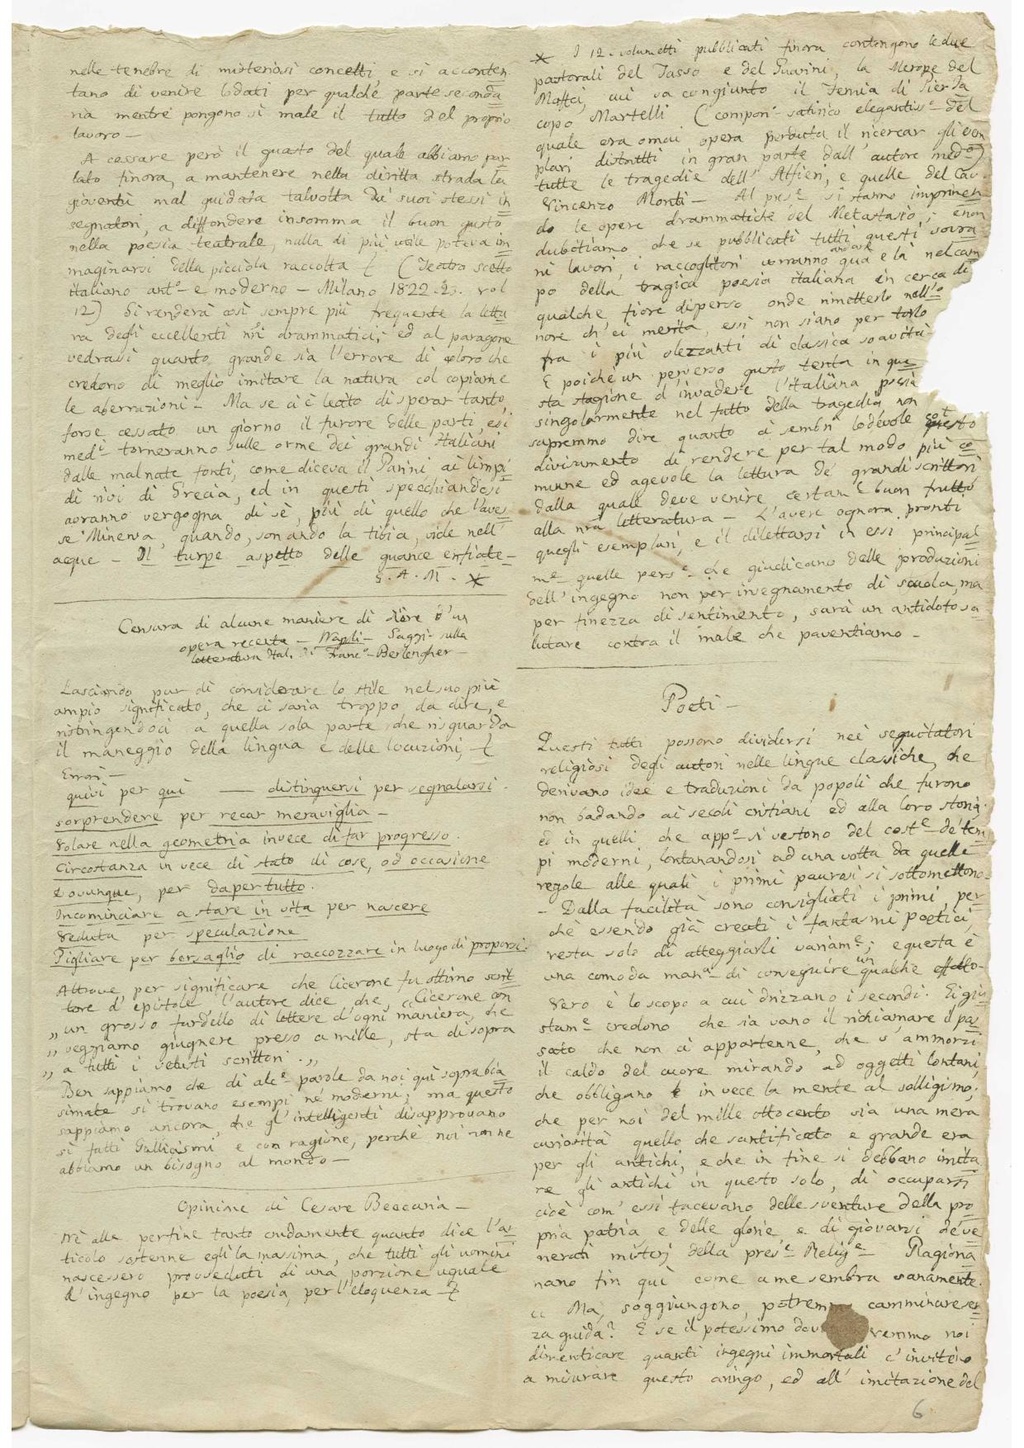 nelle tenebre di misteriosi concetti, e si acconten
tano di venire lodati per qualche parte seconda
ria mentre pongono sì male il tutto del proprio
lavoro —
A cessare però il guasto del quale abbiamo par
lato finora, a mantenere nella diritta strada la
gioventù mal guidata talvolta da suoi stessi in
segnatori, a diffondere insomma il buon gusto
nella poesia teatrale, nulla di più utile poteva im
maginarsi della picciola raccolta (Teatro scelto
italiano antº e moderno — Milano 1822-23. vol
12) Si renderà così sempre più frequente la lettu
ra degli eccellenti nri drammatici; ed al paragone
vedrassi quanto grande sia l'errore di coloro che
credono di meglio imitare la natura col copiarne
le aberrazioni — Ma se ci è lecito di sperar tanto,
forse cessato un giorno il furore delle parti, essi
medⁱ torneranno sulle orme dei grandi Italiani
dalle malnate fonti, come diceva il Parini ai limpi
di rivi di Grecia, ed in questi specchiandosi
avranno vergogna di sè, più di quello che l'aves
se Minerva, quando, sonando la tibia, vide nell'
acque — Il turpe aspetto delle guance enfiate —
S. A. M. *
Censura di alcune maniere di dire d'un
opera recente — Napoli — Saggi sulla
letteratura Ital. di Francº Berlengher —
Lasciando pur di considerare lo stile nel suo più
ampio significato, che ci saria troppo da dire, e
ristringendoci a quella sola parte che risguarda
il maneggio della lingua e delle locuzioni,
Errori —
quivi per qui — distinguersi per segnalarsi.
sorprendere per recar meraviglia —
Volare nella geometria invece di far progresso.
Circostanza in vece di stato di cose, od occasione
Dovunque, per dapertutto.
Incominciare a stare in vita per nascere
Veduta per speculazione
Pigliare per bersaglio di raccozzare in luogo di proporsi
Altrove per significare che Cicerone fu ottimo scrit
tore d'epistole l'autore dice che, "Cicerone con
" un grosso fardello di lettere d'ogni maniera, che
" veggiamo giugnere presso a mille, sta di sopra
" a tutti i vetusti scrittori. "
Ben sappiamo che di alcᵉ parole da noi quì sopra bia
simate si trovano esempi ne' moderni; ma questo
sappiamo ancora, che gl'intelligenti disapprovano
sì fatti Gallicismi e con ragione, perchè noi non ne
abbiamo un bisogno al mondo —
Opinione di Cesare Beccaria —
Nè alla perfine tanto crudamente quanto dice l'ar
ticolo sostenne egli la massima, che tutti gli uomini
nascessero provveduti di una porzione uguale
d'ingegno per la poesia, per l'eloquenza
* I 12. volumetti pubblicati finora contengono le due
pastorali del Tasso e del Guarini, la Merope del
Maffei, cui va congiunto il Femia di Pier Ja
copo Martelli (componⁱ satirico elegantissº del
quale era omai opera perduta il ricercar gli esem
plari distrutti in gran parte dall'autore medº)
tutte le tragedie dell'Alfieri, e quelle del Cav.
Vincenzo Monti — Al presᵉ si stanno imprimen
do le opere drammatiche del Metastasio; e non
dubitiamo che se pubblicati tutti questi sovra
ni lavori, i raccoglitori vorranno andar qua e là nel cam
po della tragica poesia italiana in cerca di
qualche fiore disperso onde rimetterlo nell'o
nore ch'ei merita, essi non siano per torlo
fra i più olezzanti di classica soavità
E poichè un perverso gusto tenta in que
sta stagione d'invadere l'italiana poesia
singolarmente nel fatto della tragedia, non
sapremmo dire quanto ci sembri lodevole cotesto
divisamento di rendere per tal modo più co
mune ed agevole la lettura de' grandi scrittori
dalla quale deve venire certamᵉ buon frutto
alla nra letteratura — L'avere ognora pronti
quegli esemplari, e il dilettarsi in essi principal
mᵉ quelle persᵉ che giudicano delle produzioni
dell'ingegno non per insegnamento di scuola, ma
per finezza di sentimento, sarà un antidoto sa
lutare contra il male che paventiamo —
Poeti —
Questi tutti possono dividersi nei seguitatori
religiosi degi autori nelle lingue classiche, che
derivano idee e traduzioni da popoli che furono
non badando ai secoli cristiani ed alla loro storia.
ed in quelli che appº si vestono del costᵉ de' tem
pi moderni, lontanandosi ad una volta da quelle
regole alle quali i primi paurosi si sottomettono
— Dalla facilità sono consigliati i primi, per
chè essendo già creati i fantasmi poetici
resta solo di atteggiarli variamᵉ; e questa è
una comoda manᵃ di conseguire un qualche effetto.
Vero è lo scopo a cui drizzano i secondi. Ei giu
stamᵉ credono che sia vano il richiamare il pas
sato che non ci appartenne, che s'ammorzi
il caldo del cuore mirando ad oggetti lontani,
che obbligano in vece la mente al sollogismo;
che per noi del mille ottocento sia una mera
curiosità quello che santificato e grande era
per gli antichi, e che in fine si debbano imita
re gli antichi in questo solo, di occuparsi
cioè com'essi facevano delle sventure della pro
pria patria e delle glorie, e di giovarsi de've
nerati misterj della presᵉ Religᵉ Ragiona
nano fin quì come a me sembra sanamente.
" Ma, soggiungono, potremo camminare sen
za guida? E se il potessimo dovremmo noi
dimenticare quanti ingegni immortali c'invitino
a misurare questo aringo, ed all'imitazione del
6